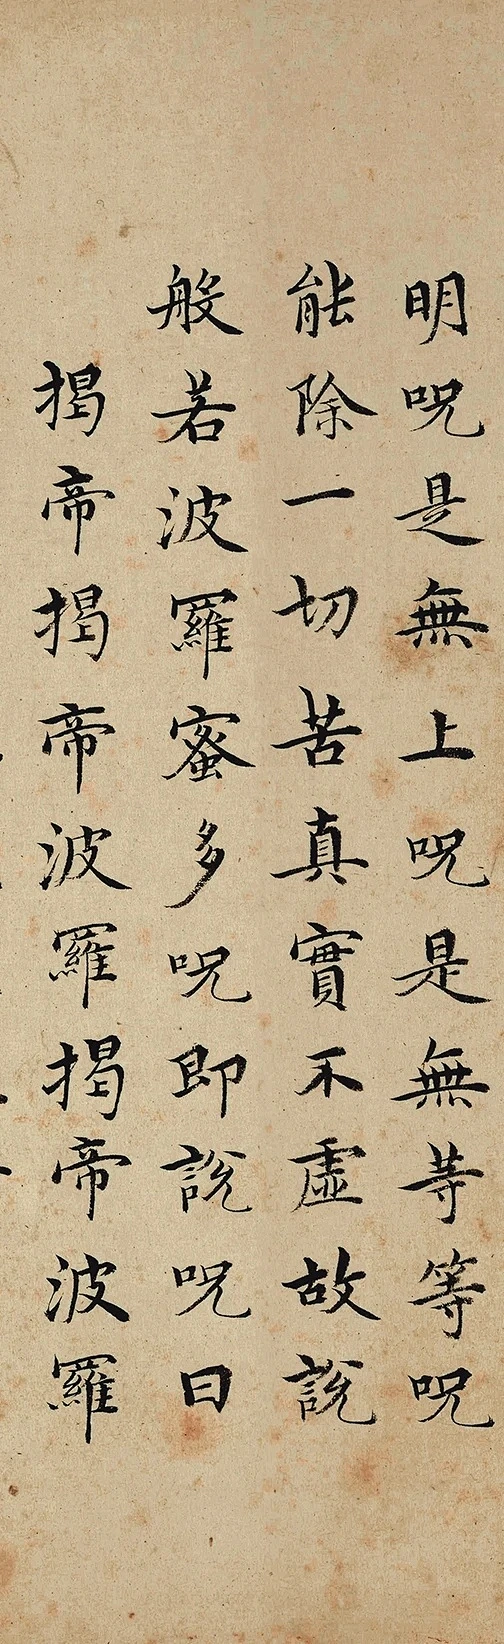 明呪是無上呪是無等等呪
能除一切苦真實不虛故說
般若波羅蜜多呪即說呪曰
揭帝揭帝波羅揭帝波羅